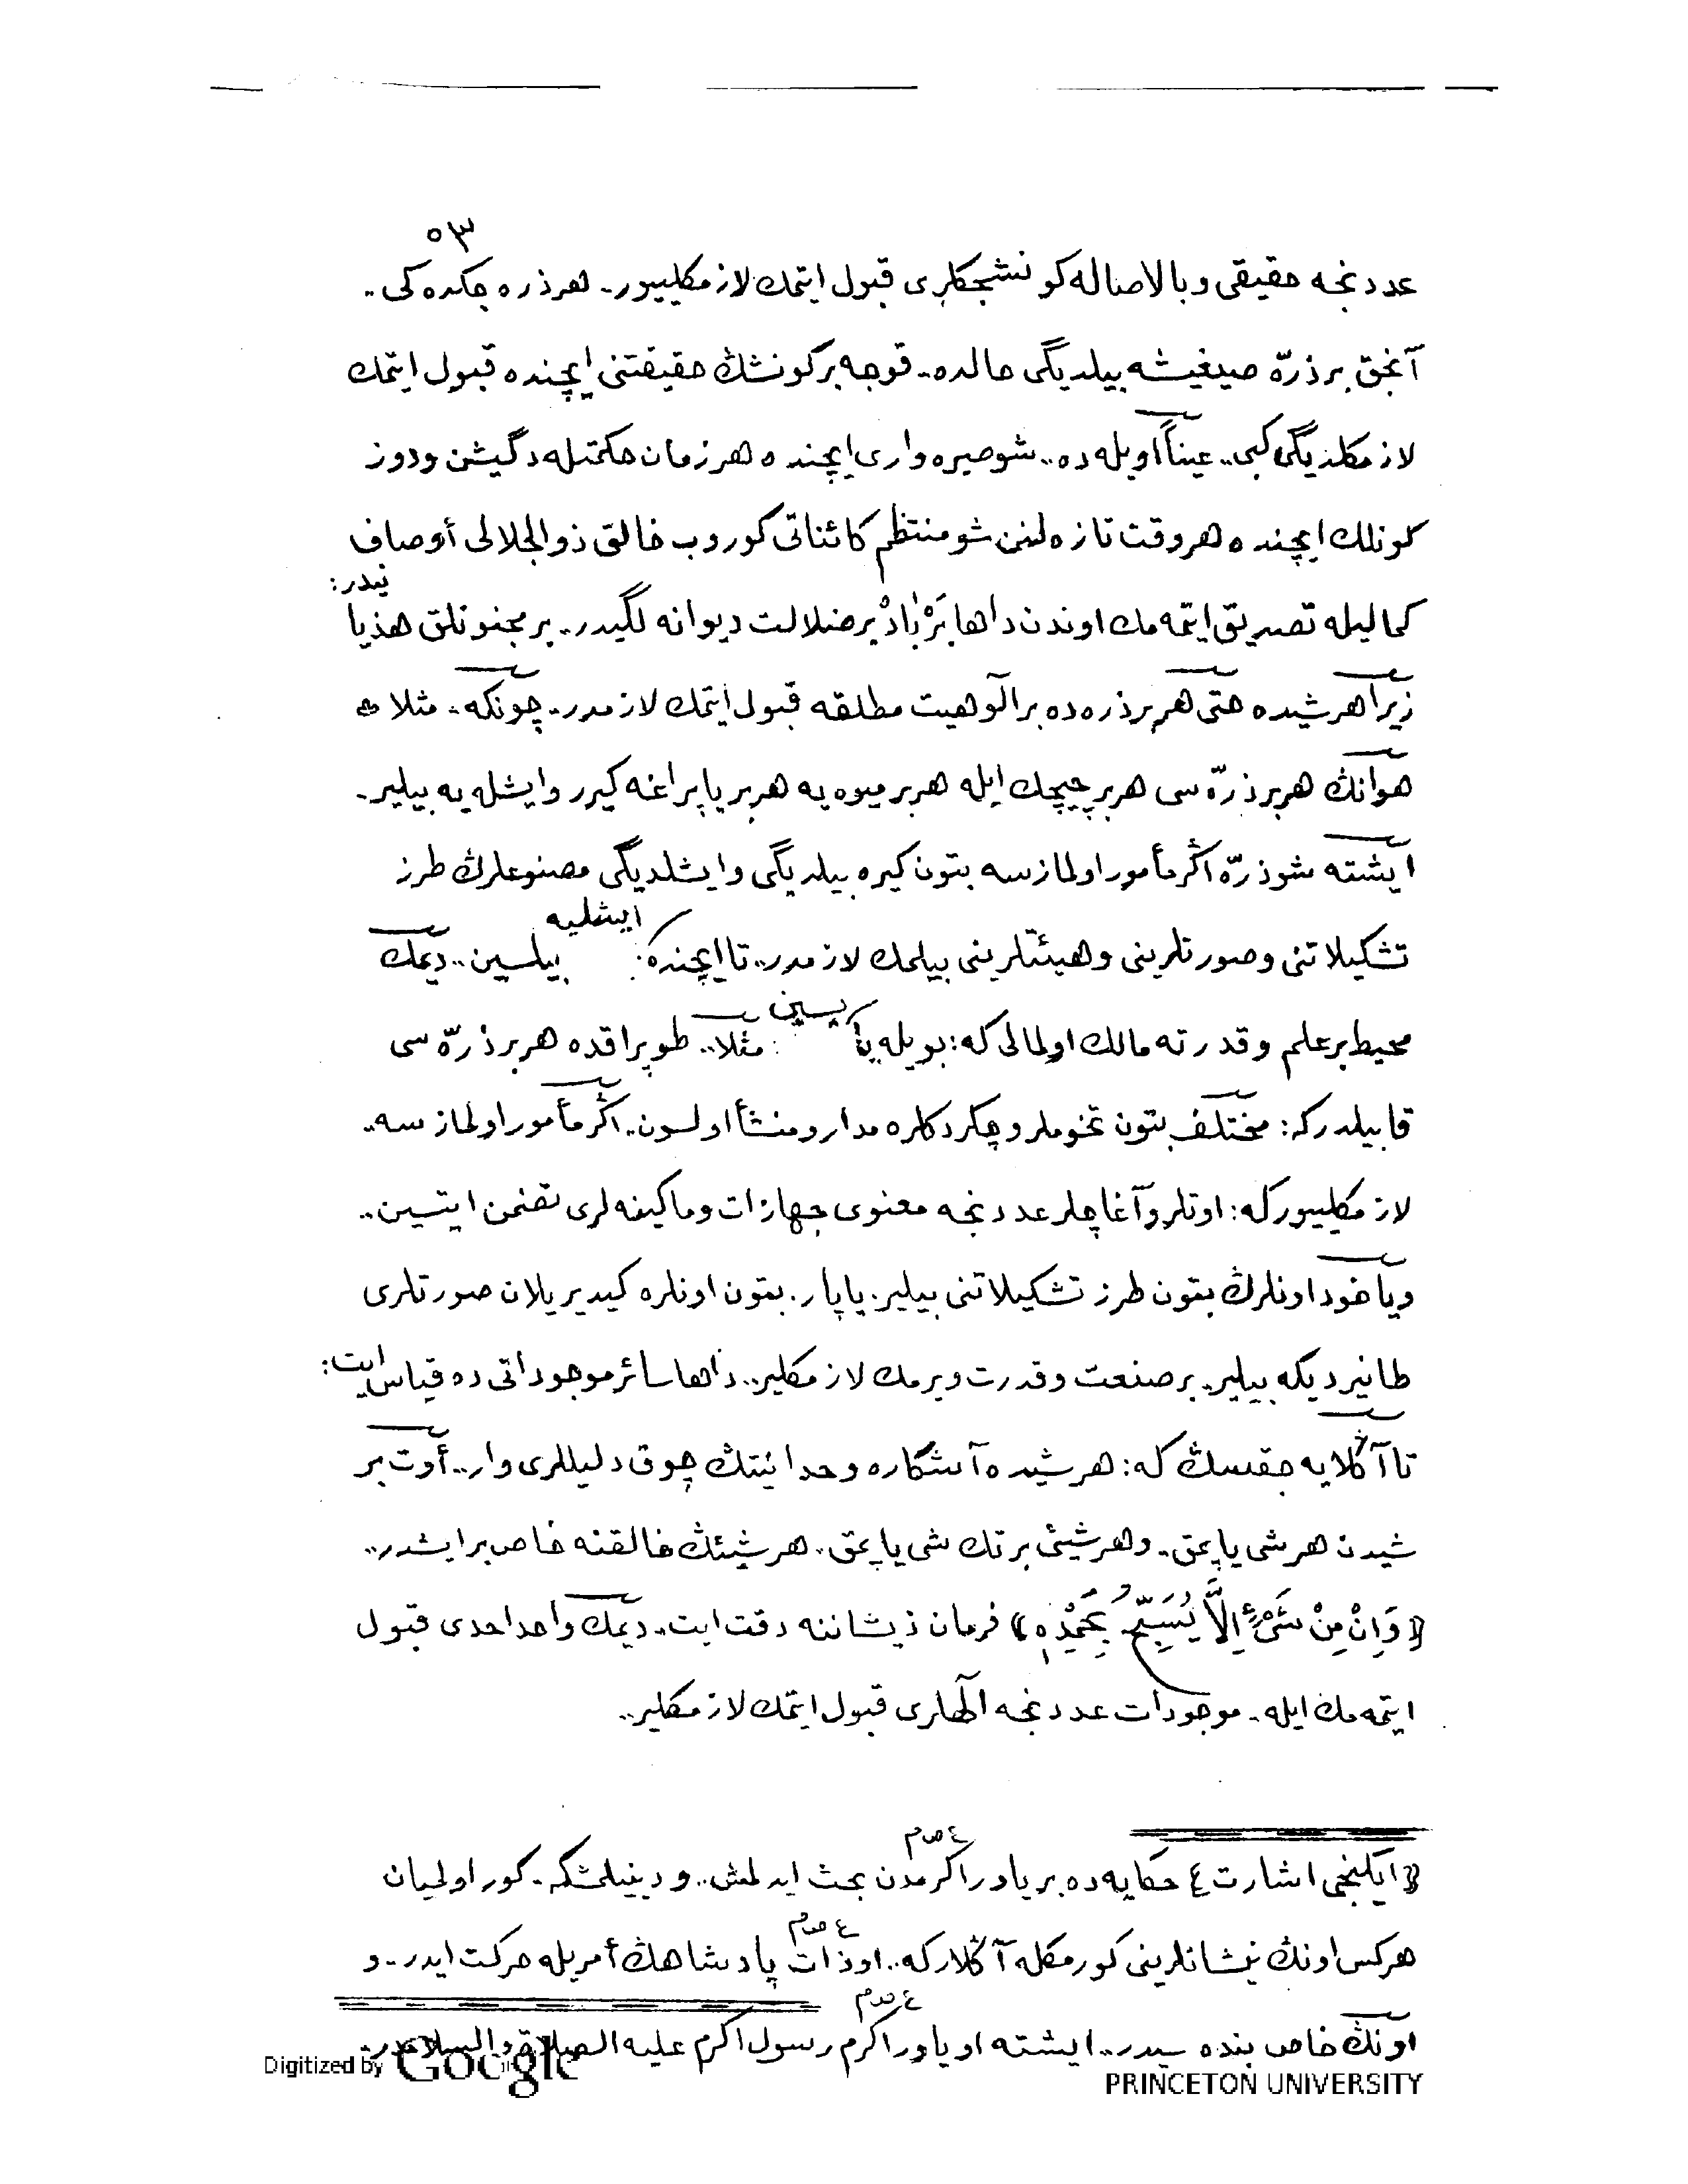 ٥٣
عددنجه حقیقی و بالاصاله کونشجکلری قبول ایتمك لازمکلییور.. هر ذره جکده کی..
آنجق بر ذرّه صیغیشه بیلدیگی حالده.. قوجه بر کونشڭ حقیقتنی ایچنده قبول ایتمك
لازمکلدیگی کبی.. عیناً اویله ده.. شو صیره واری ایچنده هر زمان حکمتله دگیشن و دوز
کونلك ایچنده هر وقت تازه لنن شو منتظم کائناتی کوروب خالق ذوالجلالی أوصاف
کمالیله تصدیق ایتمه مك اوندن داها بَرْبَادْ بر ضلالت دیوانه لگیدر.. بر مجنونلق هذیا
نیدر:
زیرا هر شیده حتی هر بر ذره ده بر الوهیت مطلقه قبول ایتمك لازمدر.. چونکه.. مثلا
هوانڭ هر بر ذرّه سی هر بر چیچك ایله هر بر میوه یه هر بر یاپراغه کیرر و ایشله یه بیلیر..
ایشته شو ذرّه اگر مأمور اولمازسه بتون کیره بیلدیگی و ایشلدیگی مصنوعلرڭ طرز
تشکیلاتنی و صورتلرینی و هیئتلرینی بیلمك لازمدر.. تا ایچنده: ایشلیه بیلسین.. دیمك
محیط بر علم و قدرته مالك اولمالی که: بویله یاپسین: مثلا.. طوپراقده هر بر ذرّه سی
قابیلدرکه: مختلف بتون تخوملر و چکردکلره مدار و منشأ اولسون.. اگر مأمور اولمازسه..
لازمکلییورکه: اوتلر و آغاچلر عددنجه معنوی جهازات و ماکینه لری تضمن ایتسین..
ویاخود اونلرڭ بتون طرز تشکیلاتنی بیلیر. یاپار. بتون اونلره کیدیریلان صورتلری
طانیر دیکه بیلیر. بر صنعت و قدرت ویرمك لازمکلیر.. داها سائر موجوداتی ده قیاس ایت:
تا آڭلایه جقسڭ که: هر شیده آشکاره وحدانیتڭ چوق دلیللری وار.. أوت بر
شیدن هر شی یاپمق.. و هر شیئی بر تك شی یاپمق.. هر شیئڭ خالقنه خاص بر ایشدر..
﴿وَاِنْ مِنْ شَیْءٍ اِلَّا یُسَبِّحُ بِحَمْدِهٖ﴾ فرمان ذیشاننه دقت ایت.. دیمك واحد احدی قبول
ایتمه مك ایله.. موجودات عددنجه الٰهلری قبول ایتمك لازمکلیر..
﴿ایکنجی اشارت﴾ حکایه ده بر یاور اکرمدن ع ص م بحث ایدلمش.. و دینیلمشکه.. کور اولمیان
هرکس اونڭ نیشانلرینی کورمکله آڭلارکه.. او ذات ع ص م پادشاهڭ أمریله حرکت ایدر.. و
اونڭ خاص بنده سیدر.. ایشته او یاور اکرم ع ص م رسول اکرم علیه الصلاة والسلامدر..
Digitized by Google
PRINCETON UNIVERSITY